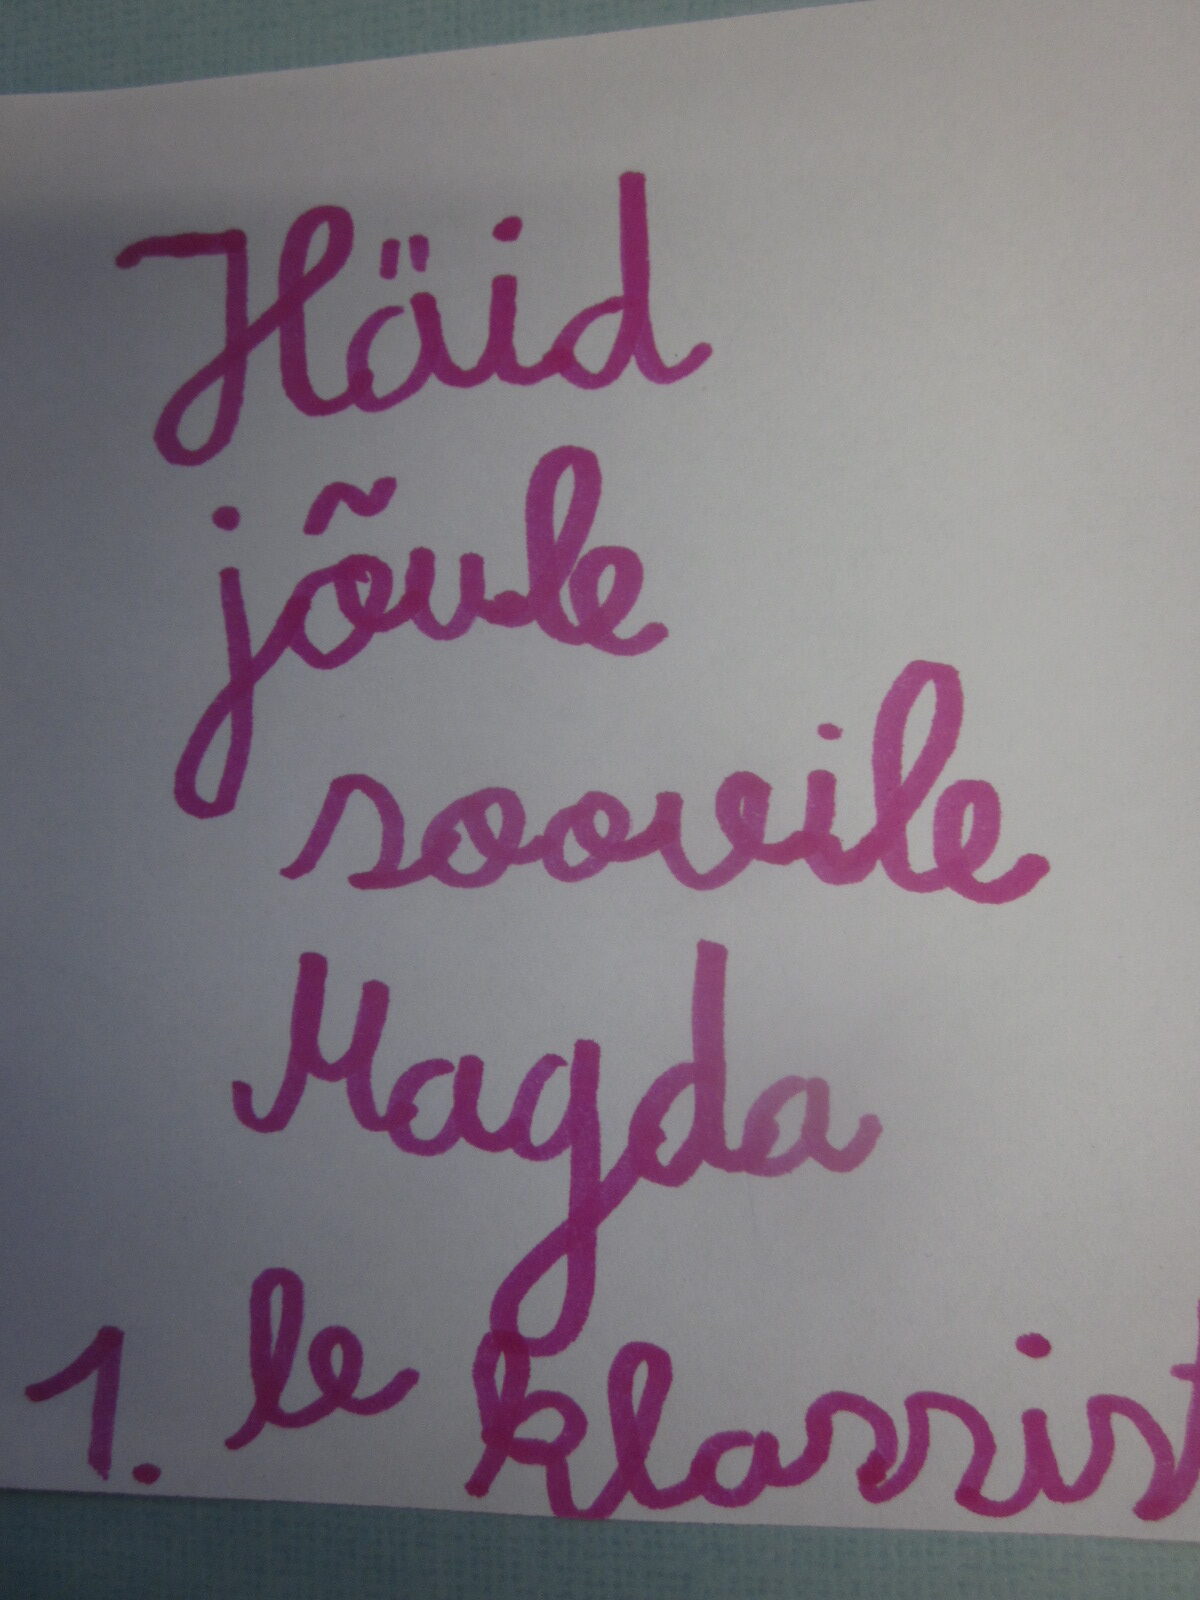 Häid
jõule
soovile
Magda
1. le klassist